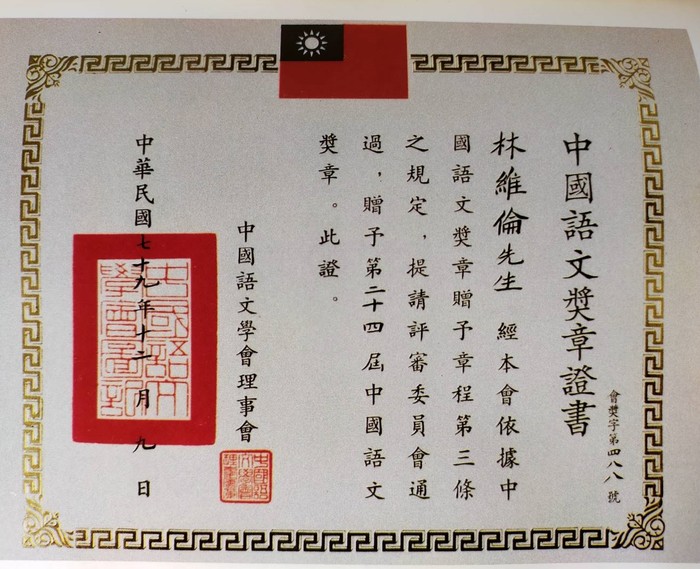 中國語文獎章證書
會獎字第四八八號
林維倫先生 經本會依據中
國語文獎章贈予章程第三條
之規定，提請評審委員會通
過，贈予第二十四屆中國語文
獎章。此證。
中國語文學會理事會
中華民國七十九年十二月九日
中國語文
學會圖記